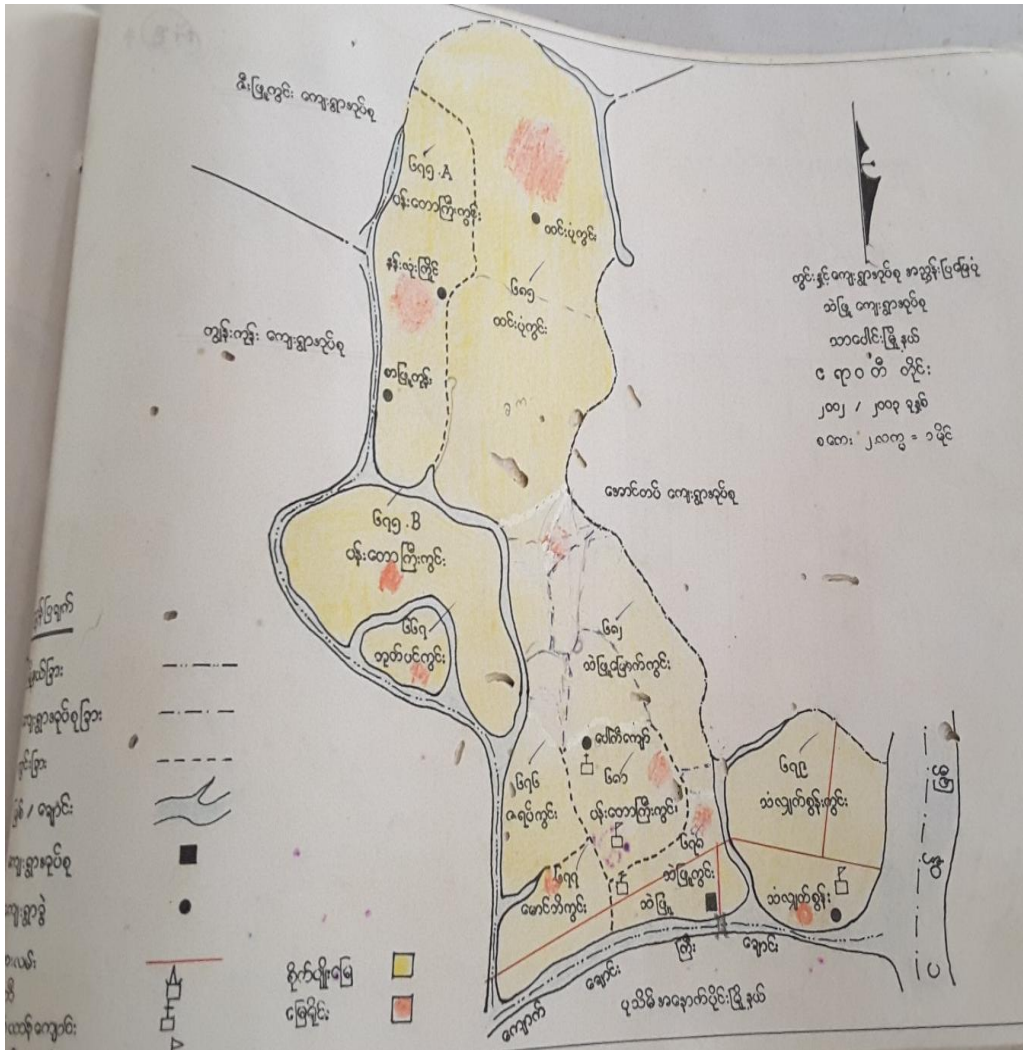 ဇီးဖြူကွင်း ကျေးရွာအုပ်စု
၆၇၅.A
ပန်းတောကြီးကွင်း
ထင်းပုံကွင်း
နန်းလုံးကြိုင်
၆၈၅
ထင်းပုံကွင်း
ကျွန်းကုန်း ကျေးရွာအုပ်စု
စာဖြူကုန်း
ကွင်းနှင့်ကျေးရွာအုပ်စု အညွှန်းပြမြေပုံ
သဲဖြူ ကျေးရွာအုပ်စု
သာပေါင်းမြို့နယ်
ဧရာဝတီ တိုင်း
၂၀၀၂ / ၂၀၀၃ ခုနှစ်
စကေး ၂လက္မ = ၁မိုင်
အောင်တပ် ကျေးရွာအုပ်စု
၆၇၅.B
ပန်းတောကြီးကွင်း
၆၆၇
ညာတ်ပင်ကွင်း
၆၈၂
သဲဖြူမြောက်ကွင်း
ပေါက်ကျော်
၆၇၆
ဇရပ်ကွင်း
၆၈၁
ပန်းတောကြီးကွင်း
၆၇၉
သံလျှက်စွန်းကွင်း
၆၇၈
သဲဖြူကွင်း
၆၇၇
မောင်ဘီကွင်း
သဲဖြူ
သံလျှက်စွန်း
ကျောက် ချောင်း ကြီး ချောင်း
ပုသိမ်အနောက်ပိုင်းမြို့နယ်
င ဝန် မြစ်
မြစ် / ချောင်း
ကျေးရွာအုပ်စု
စိုက်ပျိုးမြေ
မြေရိုင်း